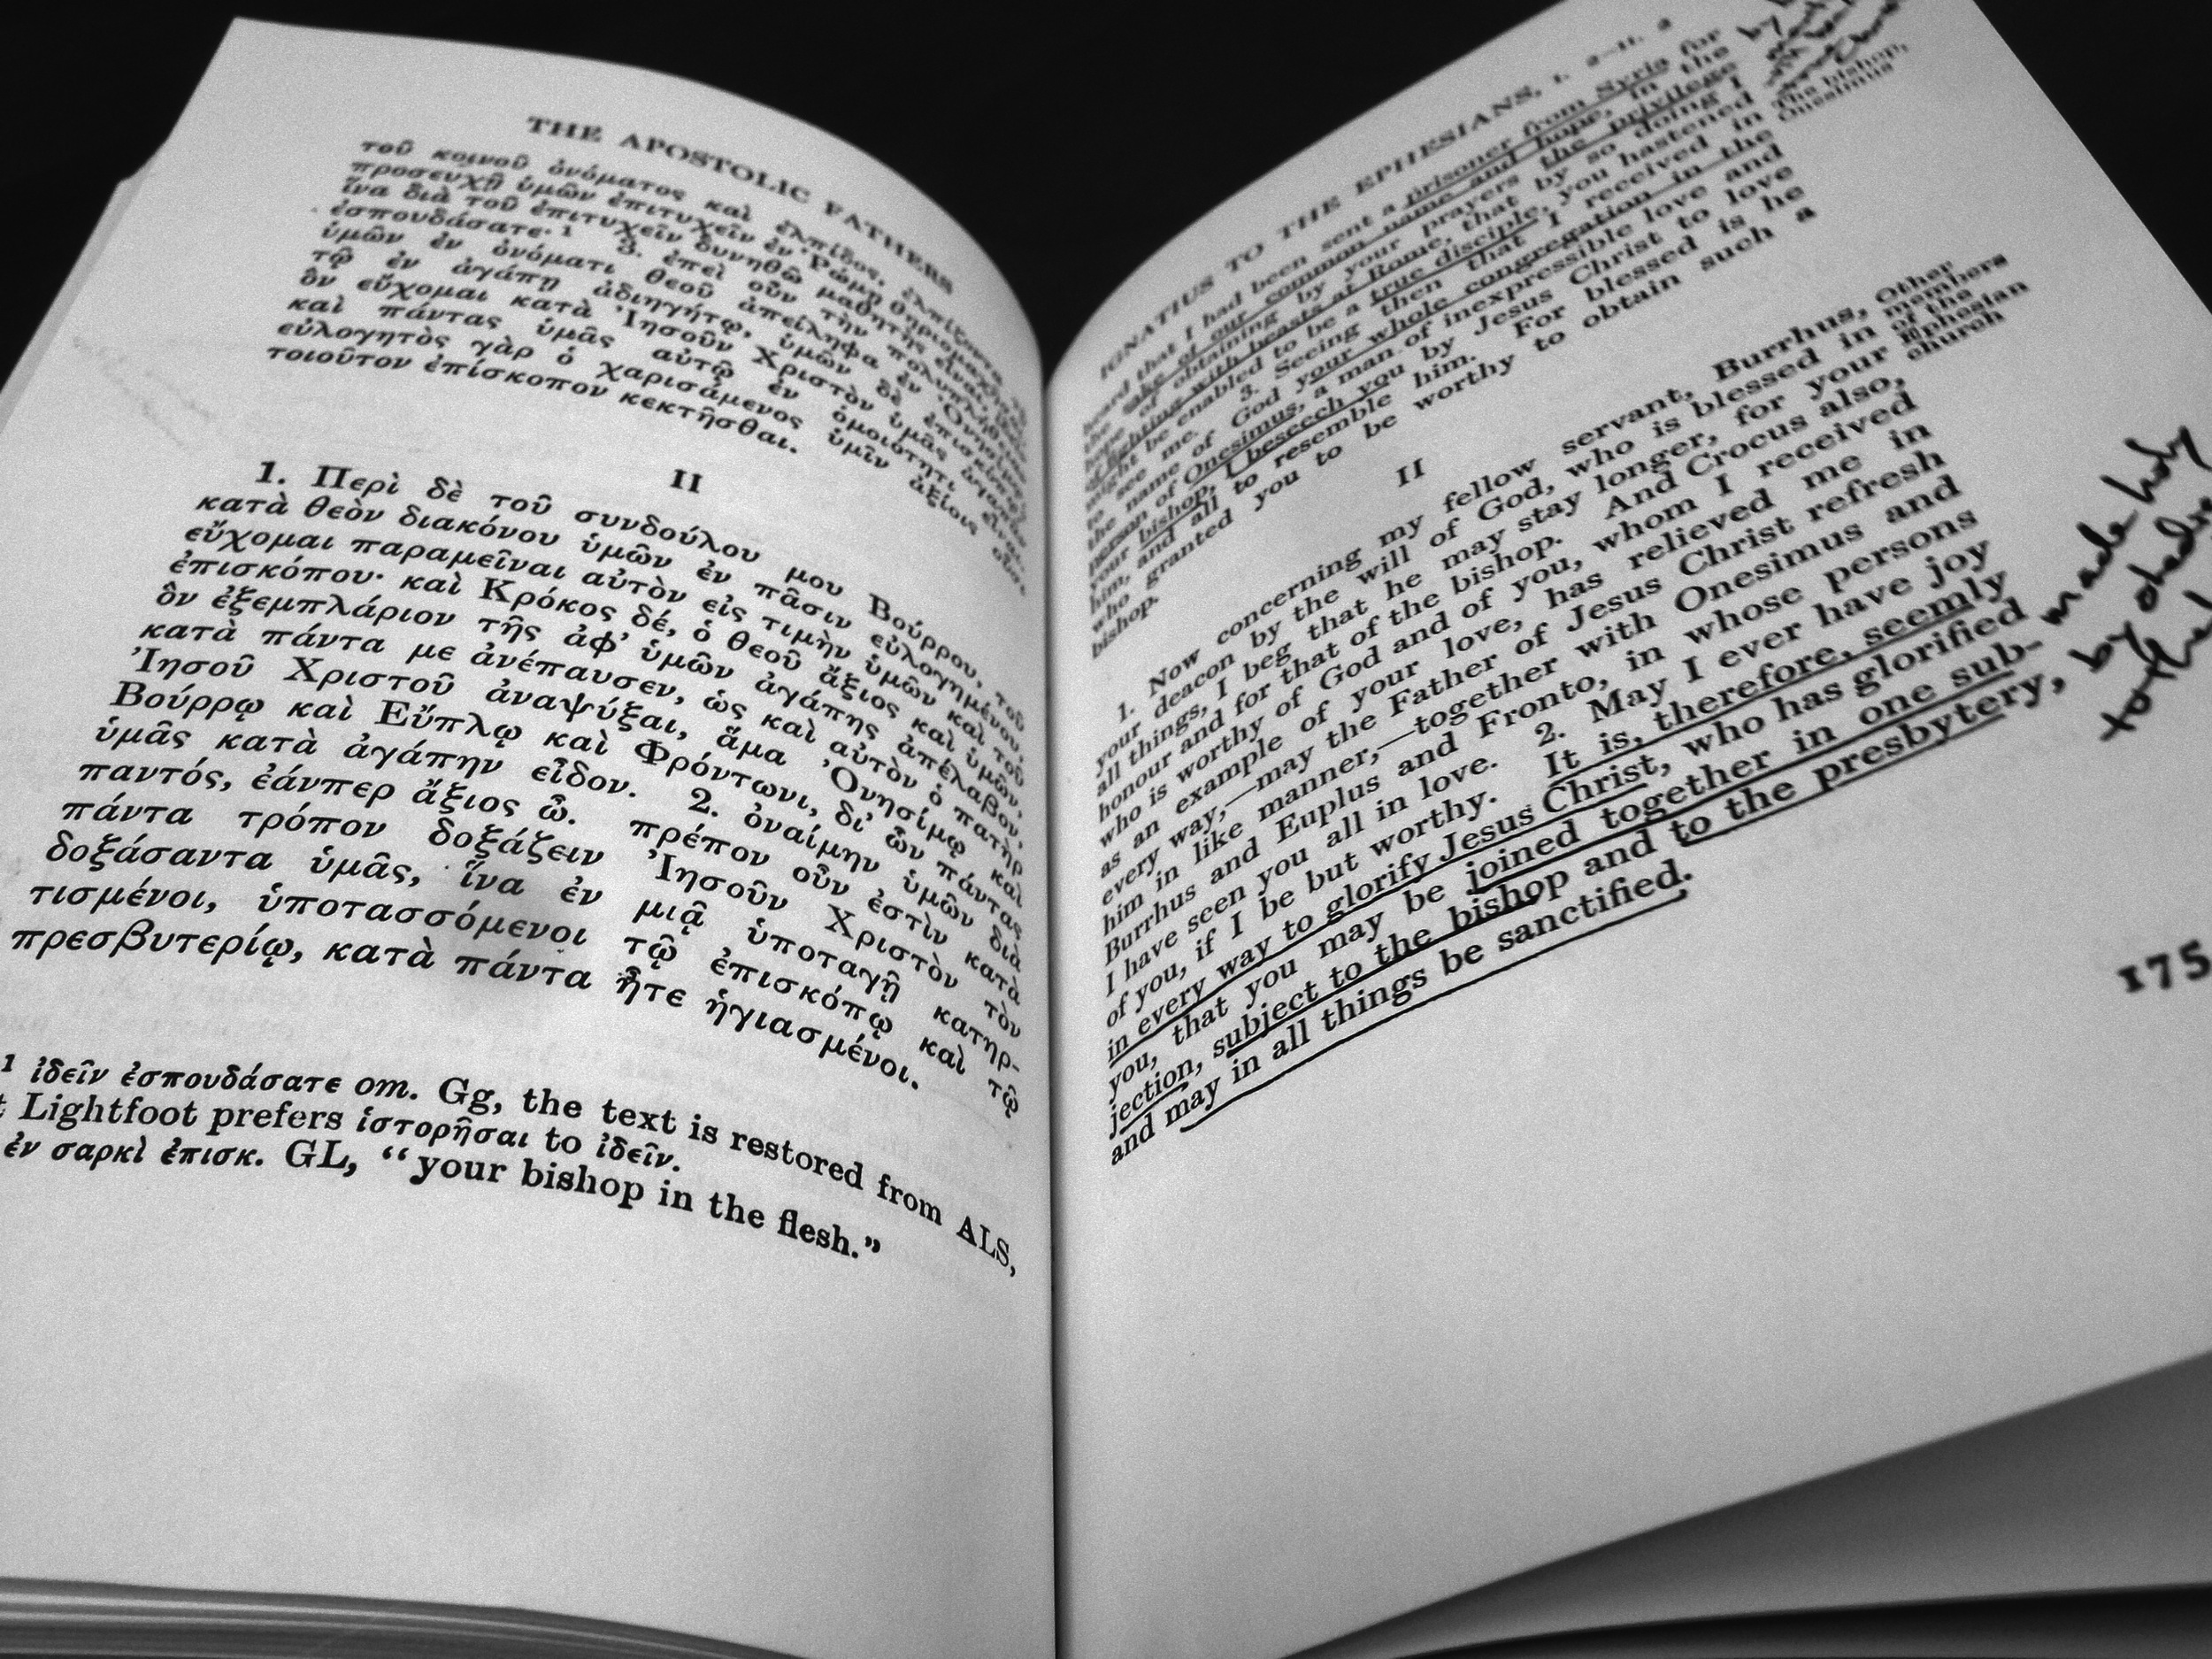 THE APOSTOLIC FATHERS
τοῦ κοινοῦ ὀνόματος καὶ ἐλπίδος, ἐλπίζοντα
προσευχῇ ὑμῶν ἐπιτυχεῖν ἐν Ῥώμῃ θηριομαχῆσαι,
ἵνα διὰ τοῦ ἐπιτυχεῖν δυνηθῶ μαθητὴς εἶναι,
ἐσπουδάσατε·¹ 3. ἐπεὶ οὖν τὴν πολυπλήθειαν
ὑμῶν ἐν ὀνόματι θεοῦ ἀπείληφα ἐν Ὀνησίμῳ,
τῷ ἐν ἀγάπῃ ἀδιηγήτῳ, ὑμῶν δὲ ἐπισκόπῳ,
ὃν εὔχομαι κατὰ Ἰησοῦν Χριστὸν ὑμᾶς ἀγαπᾶν
καὶ πάντας ὑμᾶς αὐτῷ ἐν ὁμοιότητι εἶναι.
εὐλογητὸς γὰρ ὁ χαρισάμενος ὑμῖν ἀξίοις οὖσι
τοιοῦτον ἐπίσκοπον κεκτῆσθαι.
II
1. Περὶ δὲ τοῦ συνδούλου μου Βούρρου, τοῦ
κατὰ θεὸν διακόνου ὑμῶν ἐν πᾶσιν εὐλογημένου,
εὔχομαι παραμεῖναι αὐτὸν εἰς τιμὴν ὑμῶν καὶ τοῦ
ἐπισκόπου· καὶ Κρόκος δέ, ὁ θεοῦ ἄξιος καὶ ὑμῶν,
ὃν ἐξεμπλάριον τῆς ἀφ' ὑμῶν ἀγάπης ἀπέλαβον,
κατὰ πάντα με ἀνέπαυσεν, ὡς καὶ αὐτὸν ὁ πατὴρ
Ἰησοῦ Χριστοῦ ἀναψύξαι, ἅμα Ὀνησίμῳ καὶ
Βούρρῳ καὶ Εὔπλῳ καὶ Φρόντωνι, δι' ὧν πάντας
ὑμᾶς κατὰ ἀγάπην εἶδον. 2. ὀναίμην ὑμῶν διὰ
παντός, ἐάνπερ ἄξιος ὦ. πρέπον οὖν ἐστὶν κατὰ
πάντα τρόπον δοξάζειν Ἰησοῦν Χριστὸν τὸν
δοξάσαντα ὑμᾶς, ἵνα ἐν μιᾷ ὑποταγῇ κατηρ-
τισμένοι, ὑποτασσόμενοι τῷ ἐπισκόπῳ καὶ τῷ
πρεσβυτερίῳ, κατὰ πάντα ἦτε ἡγιασμένοι.
¹ ἰδεῖν ἐσπουδάσατε om. Gg, the text is restored from ALS,
t Lightfoot prefers ἱστορῆσαι to ἰδεῖν.
ἐν σαρκὶ ἐπισκ. GL, "your bishop in the flesh."
IGNATIUS TO THE EPHESIANS, I. 2–II. 2
heard that I had been sent a prisoner from Syria for
the sake of our common name and hope, in the
hope of obtaining by your prayers the privilege
of fighting with beasts at Rome, that by so doing I
might be enabled to be a true disciple, you hastened
to see me. 3. Seeing then that I received in
the name of God your whole congregation in the
person of Onesimus, a man of inexpressible love and
your bishop, I beseech you by Jesus Christ to love
him, and all to resemble him. For blessed is he
who granted you to be worthy to obtain such a
bishop.
The bishop,
Onesimus
II
1. Now concerning my fellow servant, Burrhus,
your deacon by the will of God, who is blessed in
all things, I beg that he may stay longer, for your
honour and for that of the bishop. And Crocus also,
who is worthy of God and of you, whom I received
as an example of your love, has relieved me in
every way,—may the Father of Jesus Christ refresh
him in like manner,—together with Onesimus and
Burrhus and Euplus and Fronto, in whose persons
I have seen you all in love. 2. May I ever have joy
of you, if I be but worthy. It is, therefore, seemly
in every way to glorify Jesus Christ, who has glorified
you, that you may be joined together in one sub-
jection, subject to the bishop and to the presbytery,
and may in all things be sanctified.
Other
members
of the
Ephesian
church
made holy
175